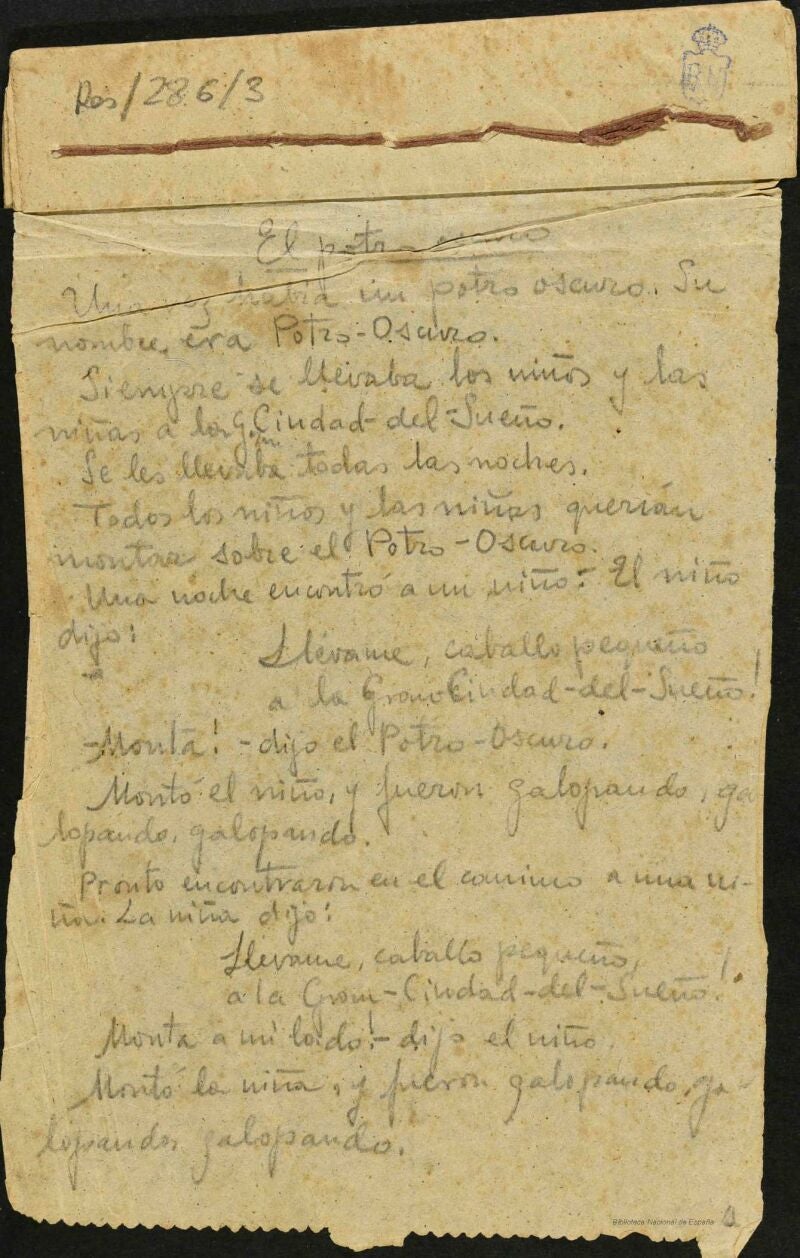 Res/286/3
BN
El potro oscuro
Una vez había un potro oscuro. Su
nombre era Potro-Oscuro.
Siempre se llevaba los niños y las
niñas a la Gran Ciudad-del-Sueño.
Se les llevaba todas las noches.
Todos los niños y las niñas querían
montar sobre el Potro-Oscuro.
Una noche encontró a un niño. El niño
dijo:
Llévame, caballo pequeño
a la Gran Ciudad-del-Sueño!
-Monta! - dijo el Potro-Oscuro.
Montó el niño, y fueron galopando, ga
lopando, galopando.
Pronto encontraron en el camino a una ni-
ña. La niña dijo:
Llevame, caballo pequeño,
a la Gran-Ciudad-del-Sueño!
Monta a mi lado! - dijo el niño.
Montó la niña, y fueron galopando, ga-
lopando, galopando.
Biblioteca Nacional de España